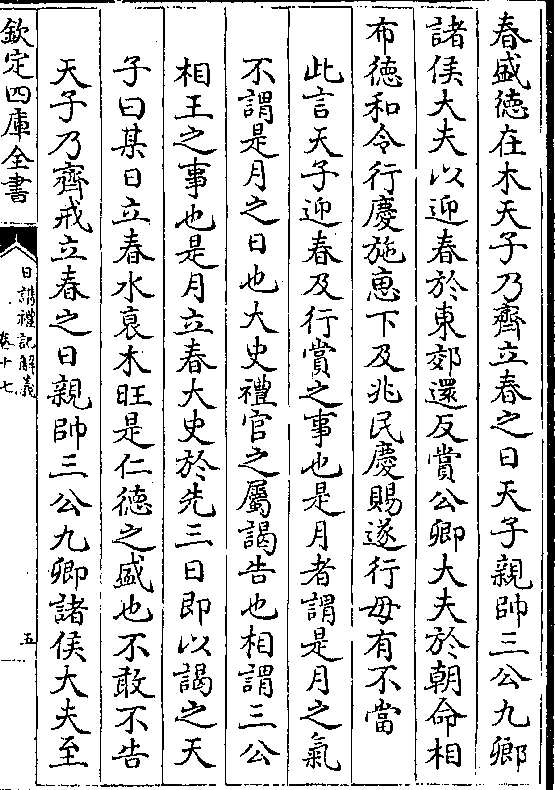 春盛德在木天子乃齊立春之日天子親帥三公九卿
諸侯大夫以迎春於東郊還反賞公卿大夫於朝命相
布德和令行慶施惠下及兆民慶賜遂行毋有不當
此言天子迎春及行賞之事也是月者謂是月之氣
不謂是月之日也大史禮官之屬謁告也相謂三公
相王之事也是月立春大史於先三日即以謁之天
子曰某日立春水衰木旺是仁德之盛也不敢不告
天子乃齊戒立春之日親帥三公九卿諸侯大夫至
欽定四庫全書
日講禮記解義
卷十七
五